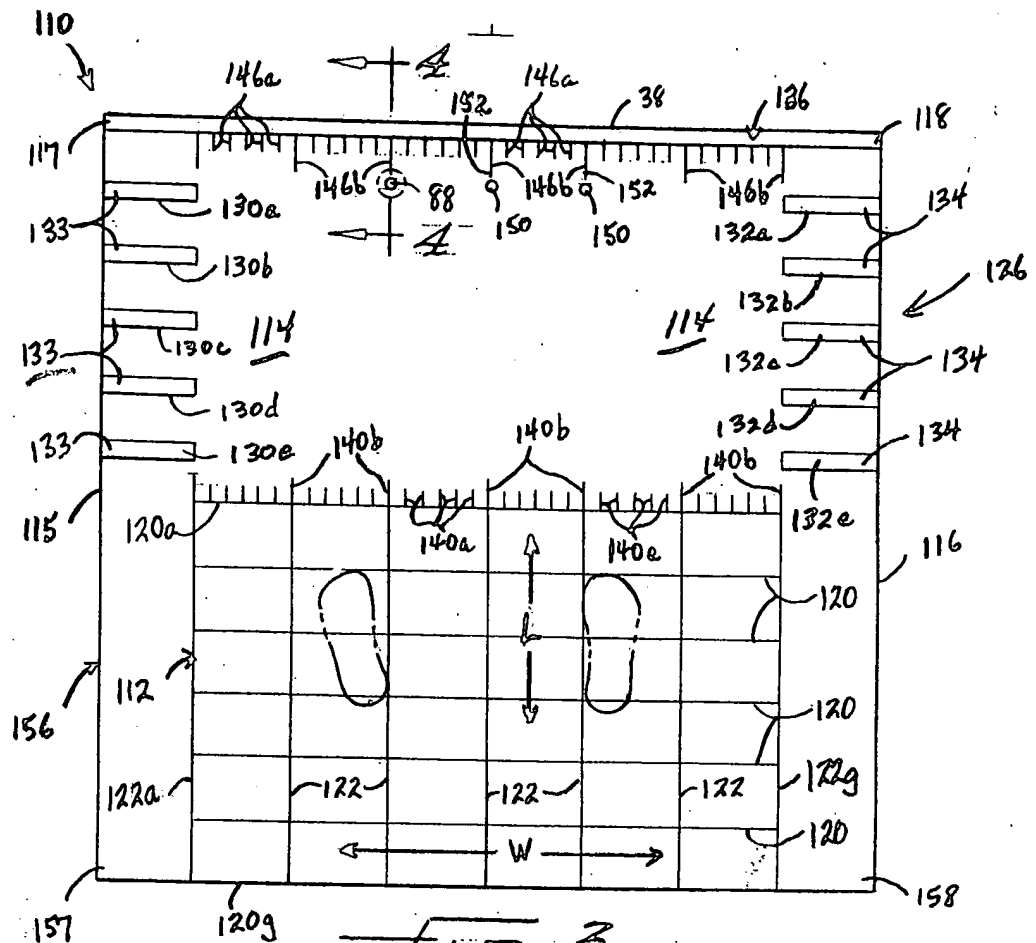 110
4
146a
152
146a
38
136
118
117
146b
88
146b
152
146b
133
130a
150
150
132a
134
130b
132b
126
130c
114
114
132c
133
134
130d
132d
133
130e
140b
140b
140b
134
115
120a
140a
140e
132e
116
L
120
156
112
120
122a
122
122
122
122g
W
120
157
120g
158
4
2